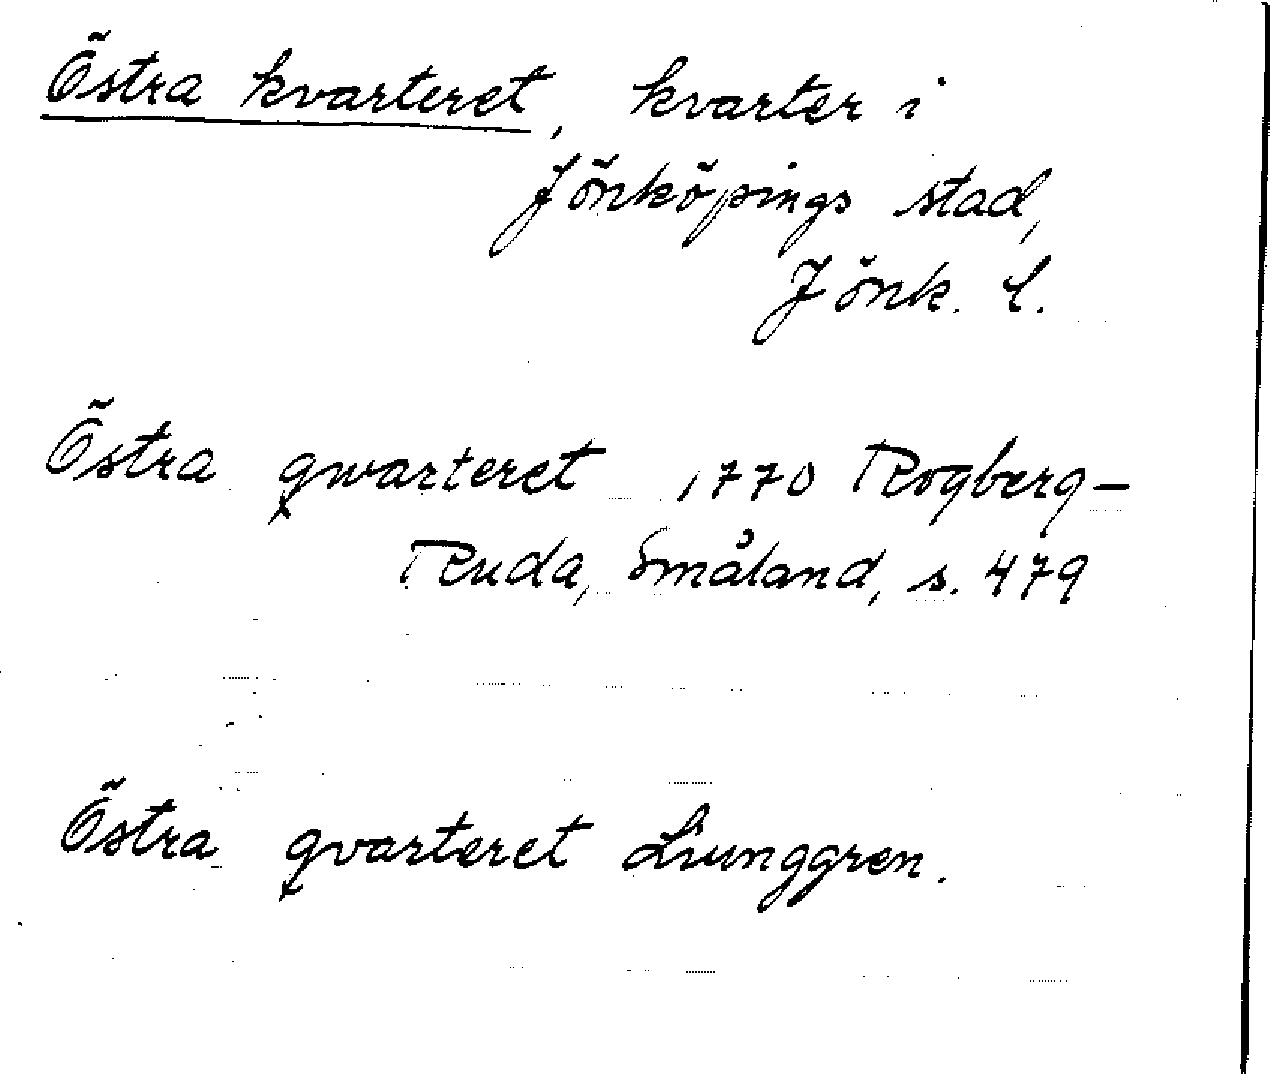 Östra kvarteret, kvarter i
Jönköpings stad,
Jönk. l.
Östra qwarteret 1770 Rogberg-
Ruda, Småland, s. 479
Östra qvarteret Liunggren.